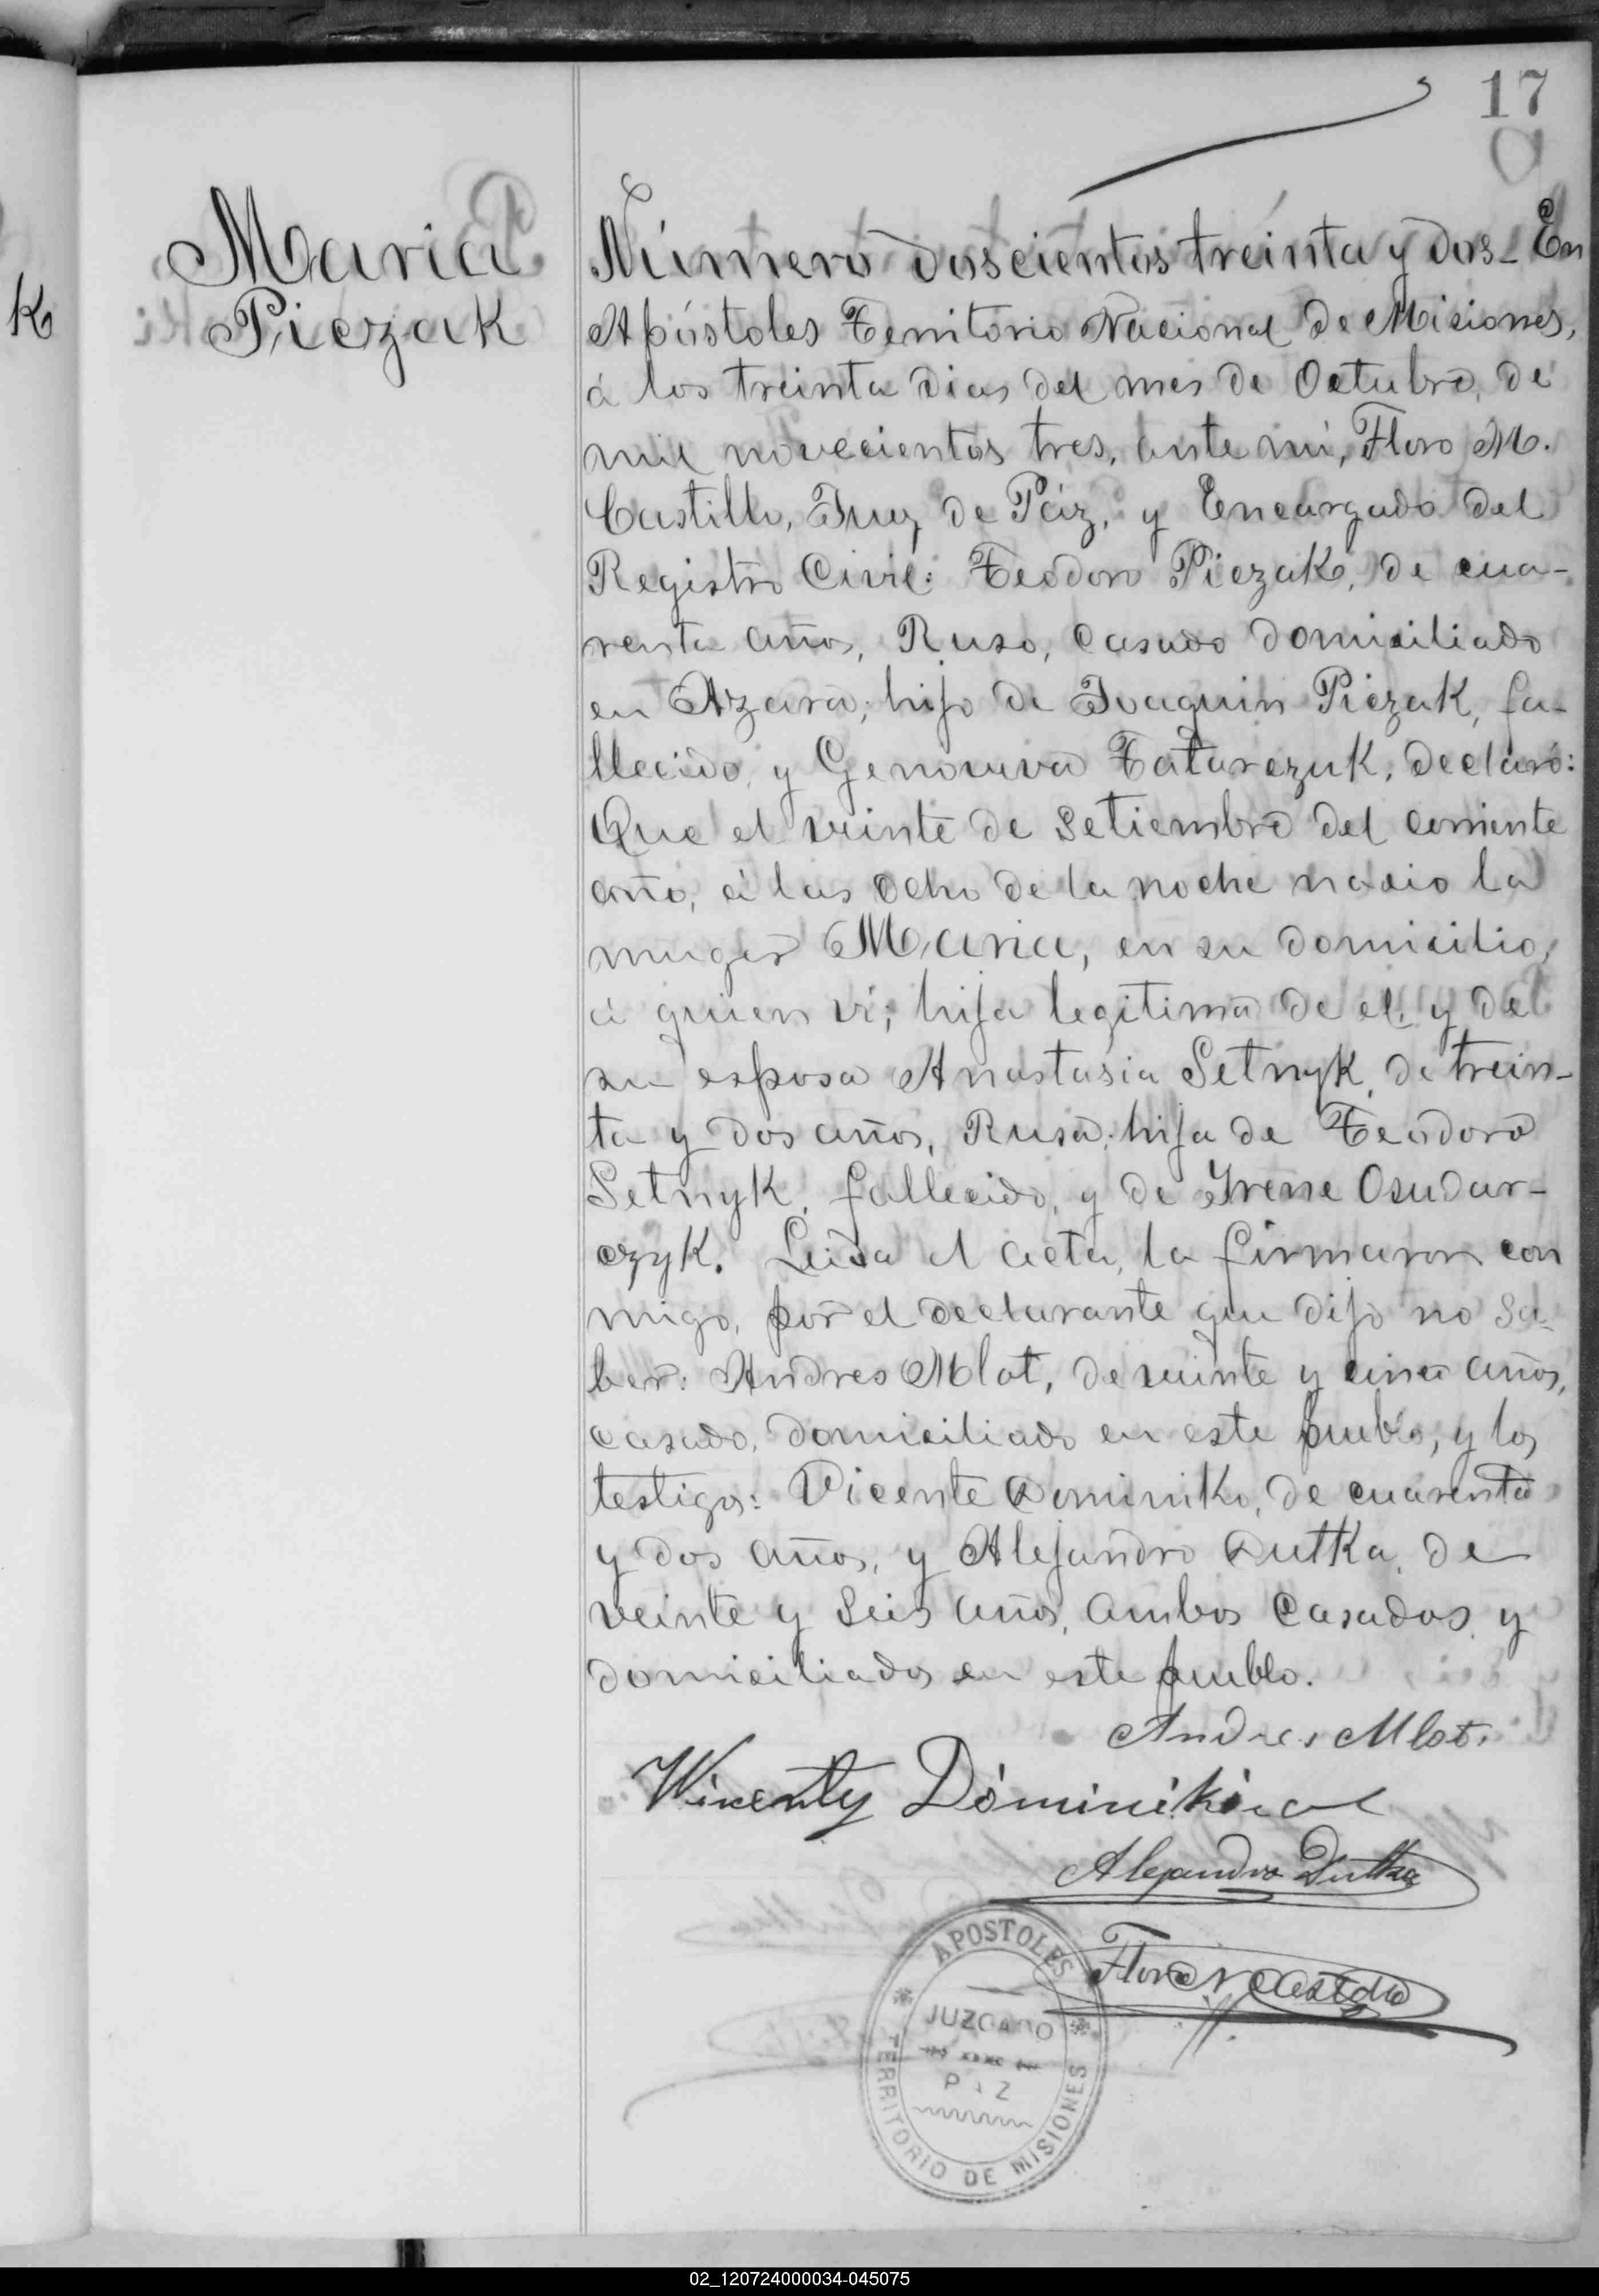 17
K
Maria
Piezak
Número doscientos treinta y dos_ En
Apóstoles Territorio Nacional de Misiones,
á los treinta dias del mes de Octubre, de
mil novecientos tres, ante mi, Floro M.
Castillo, Juez de Páz, y Encargado del
Registro Civil: Teodoro Piezak, de cua-
renta años, Ruso, Casado domiciliado
en Azara; hijo de Joaquin Piezak, fa-
llecido, y Genoveva Tatarezuk, declaró:
Que el veinte de Setiembre del corriente
año, á las ocho de la noche nacio la
muger Maria, en su domicilio,
á quien vi; hija legitima de el, y de
su esposa Anastasia Setnyk, de trein-
ta y dos años, Rusa; hija de Teodoro
Setnyk, fallecido, y de Yrene Osudar-
czyk. Leida el acta, la firmaron con
migo, por el declarante que dijo no sa-
ber: Andres Mlot, de veinte y cinco años,
casado, domiciliado en este pueblo, y los
testigos: Vicente Dominiko, de cuarenta
y dos años, y Alejandro Dutka, de
veinte y seis años, ambos casados y
domiciliados en este pueblo.
Andres Mlot.
Wincenty
Alejandro Dutka
Floro M Castillo
APOSTOLES
JUZGADO
PAZ
TERRITORIO DE MISIONES
02_120724000034-045075